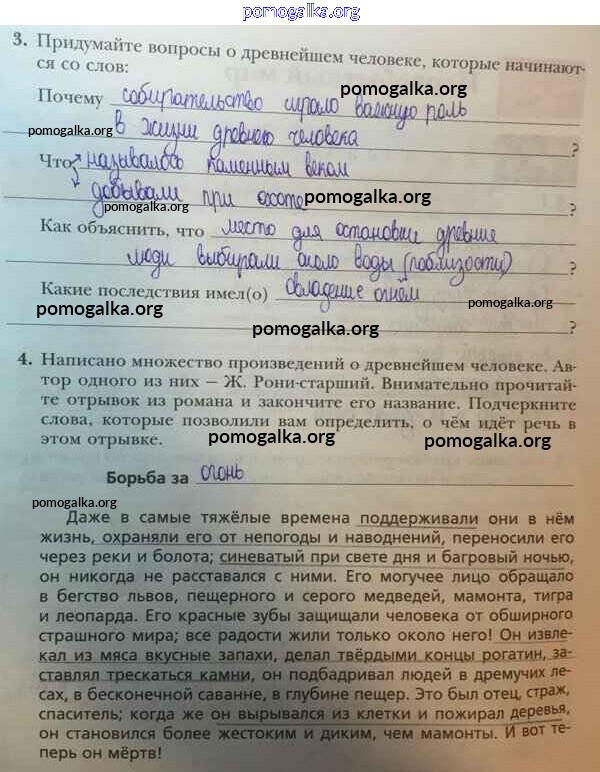 pomogalka.org
3. Придумайте вопросы о древнейшем человеке, которые начинают-
ся со слов:
pomogalka.org
Почему собирательство играло важную роль
pomogalka.org
в жизни древнего человека ?
Что называлось каменным веком
добывали при охоте ?
pomogalka.org pomogalka.org
Как объяснить, что место для остановки древние
люди выбирали около воды (поблизости) ?
Какие последствия имел(о) овладение огнём
pomogalka.org
pomogalka.org
pomogalka.org ?
4. Написано множество произведений о древнейшем человеке. Ав-
тор одного из них – Ж. Рони-старший. Внимательно прочитай-
те отрывок из романа и закончите его название. Подчеркните
слова, которые позволили вам определить, о чём идёт речь в
этом отрывке.
pomogalka.org pomogalka.org
Борьба за огонь
pomogalka.org
Даже в самые тяжёлые времена поддерживали они в нём
жизнь, охраняли его от непогоды и наводнений, переносили его
через реки и болота; синеватый при свете дня и багровый ночью,
он никогда не расставался с ними. Его могучее лицо обращало
в бегство львов, пещерного и серого медведей, мамонта, тигра
и леопарда. Его красные зубы защищали человека от обширного
страшного мира; все радости жили только около него! Он извле-
кал из мяса вкусные запахи, делал твёрдыми концы рогатин, за-
ставлял трескаться камни, он подбадривал людей в дремучих ле-
сах, в бесконечной саванне, в глубине пещер. Это был отец, страж,
спаситель; когда же он вырывался из клетки и пожирал деревья,
он становился более жестоким и диким, чем мамонты. И вот те-
перь он мёртв!